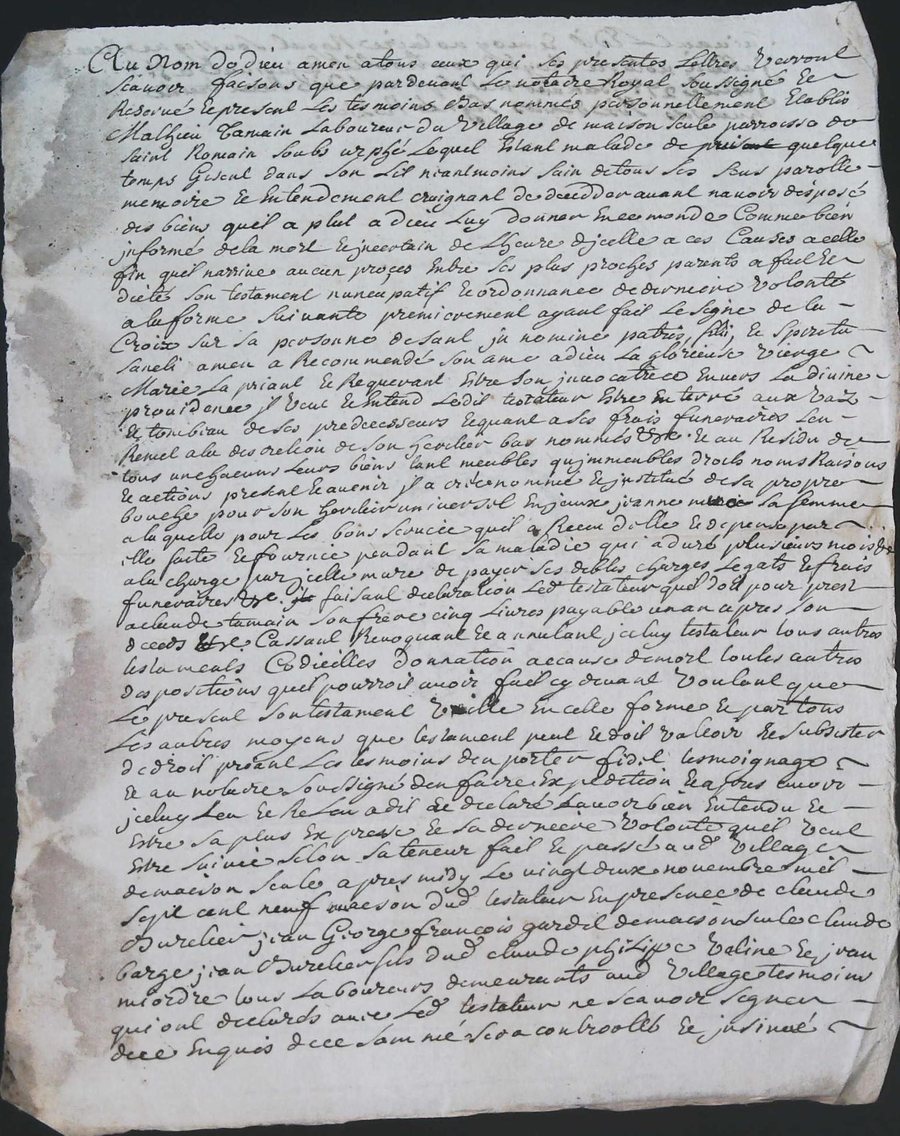 Au Nom de dieu amen a tous ceux qui ses presentes Lettres Verront
scavoir faisons que pardevant Le notaire Royal soussigné Et
Reservé Et present Les tesmoins Bas nommés personnellement Etably
Mathieu Tamain Laboureur du Village de maison seule parroisse de
saint Romain soubs urphé Lequel Estant malade de quelque
temps Gisent dans son Lit neantmoins sain de tous ses sens parolle
memoire Et Entendement craignant de deceder avant navoir desposé
des biens quil a plut a dieu Luy donner En ce monde Comme bien
informé de la mort Et jncertain de Lheure djcelle a ces Causes a celle
fin quil narrive aucun proçes Entre ses plus proches parents a fait Et
dicté son testament nuncupatif Et ordonnance de derniere Volonté
a la forme suivante premierement ayant fait Le signe de la
Croix sur sa personne disant jn nomine patris, filii, Et spiritu
sancti amen a Recommendé son ame a dieu La glorieuse Vierge
Marie La priant Et Requerant Estre son jnvocatrice Envers La divine
providence jl Veut Et Entend Ledit testateur Estre Enterré aux Vaz
Et tombeau de ses predecesseurs Et quant a ses frais funeraires sen
Remet a la descretion de son heritier bas nommés Et au Residu de
tous un chacuns Leurs biens tant meubles qujmmeubles droits noms Raisons
Et actions present Et avenir jl a créé nommé Et jnstitué de sa propre
bouche pour son heritier universel Enjeux jeanne sa femme
a laquelle pour Les bons services quil a Receu delle Et depense par
elle faite Et fournie pendant sa maladie qui a duré plusieurs mois
a la charge par jcelle mure de payer ses debtes charges Legats Et frais
funeraires faisant declaration Led testateur quil doit pour prest
a claude tamain son frère cinq Livres payable un an apres son
deceds Cassant Revoquant Et annulant jceluy testateur tous autres
testaments Codicilles donnation a cause de mort toutes autres
dispositions quil pourroit avoir fait cy devant Voulant que
Le present son testament Vaille En celle forme Et par tous
Les autres moyens que testament peut Et doit Valoir Et subsister
de droit priant Les tesmoins den porter fidel tesmoignage
Et au notaire soussigné den faire Expedition Et apres avoir
jceluy Leu Et ReLeu a dit Et declaré Lavoir bien Entendu Et
Estre sa plus Expresse Et sa derniere Volonté quil Veut
Estre suivie selon sa teneur fait Et passé aud Village
de maison seule apres midy Le vingt deux novembre mil
sept cent neuf maison dud testateur En presence de claude
Burelier jean George françois gardel de maison seule claude
barge jean Burelier fils dud claude philippe Valine Et jean
miordre tous Laboureurs demeurants aud Village tesmoins
qui ont declarés avec Led testateur ne scavoir signer
de ce Enquis de ce sommé sera controollé Et jnsinué